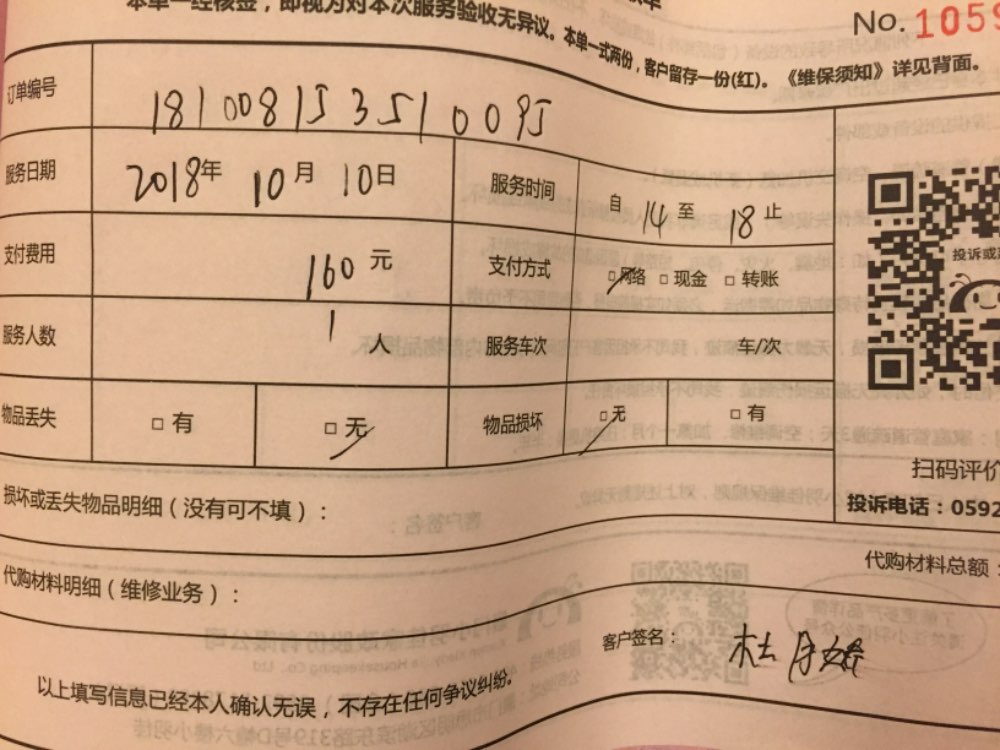 本单一经核签，即视为对本次服务验收无异议。本单一式两份，客户留存一份(红)。《维保须知》详见背面。
No. 1059
订单编号 181008153510095
服务日期 2018年 10月 10日 服务时间 自 14 至 18 止
支付费用 160 元 支付方式 □网络 □现金 □转账
服务人数 1 人 服务车次 车/次
物品丢失 □有 □无 物品损坏 □无 □有
投诉或
扫码评价
投诉电话：0592
损坏或丢失物品明细（没有可不填）：
代购材料总额：
代购材料明细（维修业务）：
客户签名：杜月
以上填写信息已经本人确认无误，不存在任何争议纠纷。